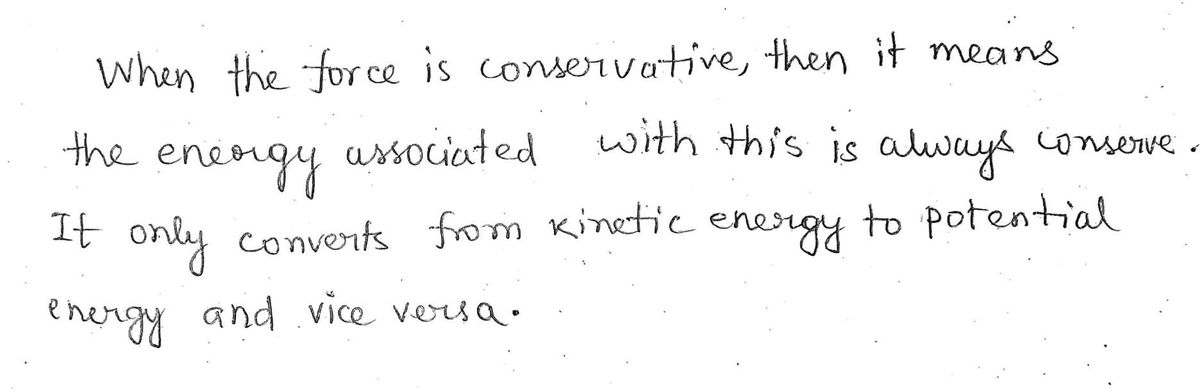 When the force is conservative, then it means
the energy associated with this is always conserve.
It only converts from kinetic energy to potential
energy and vice versa.